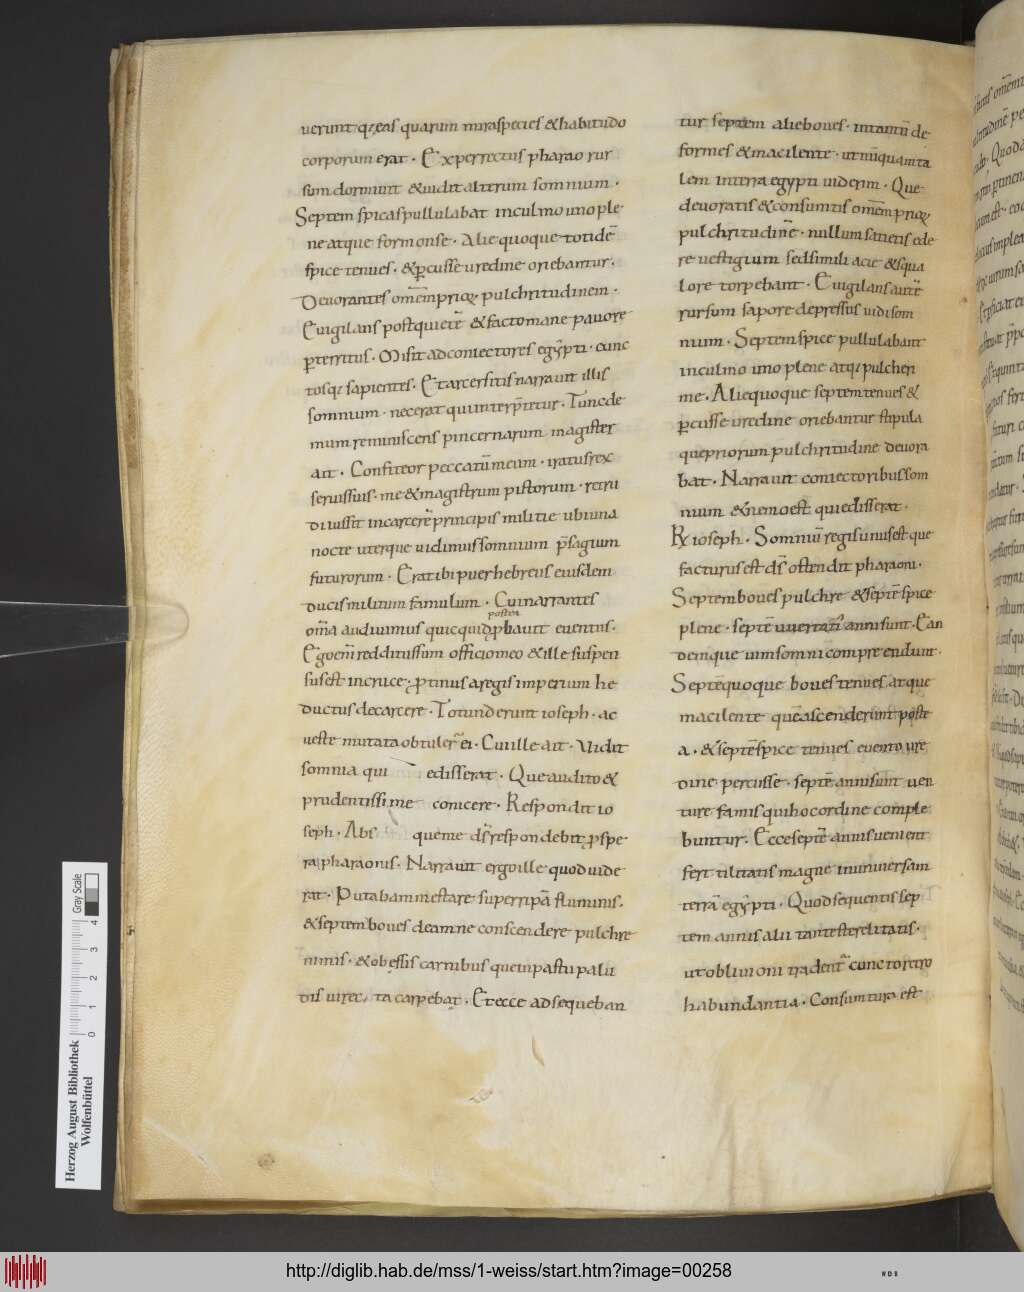 uerunt q; eas quarum mira species & habitudo
corporum erat. Experrectus pharao rur
sum dormiuit & uidit alterum somnium.
Septem spicas pullulabat in culmo uno ple
ne atque formonse. Alie quoque totidē
spice tenues. & ꝑcusse uredine oriebantur.
Deuorantes om̄em priorꝝ pulchritudinem.
Euigilans post quietē & facto mane pauore
ꝑterritus. Misit ad coniectores egyp̄ti. cunc
tosq; sapientes. Et arcersitis narrauit illis
somnium. nec erat qui interp̄tetur. Tunc de
mum reminiscens pincernarum magister
ait. Confiteor peccatū meum. iratus rex
seruis suis. me & magistrum pistorum. retru
di iussit in carcerē principis militie ubi una
nocte uterque uidimus somnium p̄sagium
futurorum. Erat ibi puer hebreus eiusdem
ducis militum famulum. Cui narrantes
postea
om̄a audiuimus quicquid ꝓbauit euentus.
Ego eni redditus sum officio meo & ille suspen
sus est in cruce. ꝓtinus a regis imperium he
ductus de carcere. Totunderunt ioseph. ac
ueste mutata obtuler̄ ei. Cui ille ait. Uidit
somnia qui edisserat. Que audito &
prudentissime conicere. Respondit io
seph. Abs que me ds̄ respondebit ꝓspe
ra pharaonis. Narrauit ergo ille quod uide
rat. Putabam me stare super ripā fluminis.
& septem boues de amne conscendere pulchre
nimis. & obessis carnibus que in pastu palu
dis uirecta carpebat. Et ecce ad sequeban
tur septem alie boues. in tantū de
formes & macilente. ut nūquam ta
lem in terra egypti uiderim. Que
deuoratis & consumtis om̄em priorꝝ
pulchritudinē. nullum satietis ede
re uestigium sed simili acie & squa
lore torpebant. Euigilans autē
rursum sapore depressus uidi som
nium. Septem spice pullulabant
in culmo uno plene atq; pulcheri
me. Alie quoque septem tenues &
ꝑcusse uredine oriebantur stipula
que priorum pulchritudine deuora
bat. Narraui coniectoribus som
nium & nemo est qui edisserat.
Rx ioseph. Somniū regis unus est que
facturus est ds̄ ostendit pharaoni.
Septem boues pulchre & septē spice
plene. septē uuertatis anni sunt. Ean
demque uim somni compre endunt.
Septē quoque boues tenues atque
macilente que ascenderunt poste
a. & septē spice tenues euento ure
dine percusse. septē anni sunt uen
ture famis qui hoc ordine comple
buntur. Ecce septē anni sueniunt
fertilitatis magne in uniuersam
terrā egyp̄ti. Quod sequentis sep
tem annis alii tante sterelitatis.
ut obliuioni tradent̄ cuncto retro
habundantia. Consumtura est
Gray Scale
Herzog August Bibliothek
Wolfenbüttel
0 1 2 3 4
http://diglib.hab.de/mss/1-weiss/start.htm?image=00258